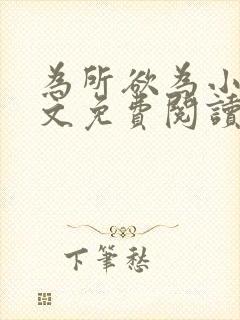 為所欲為小
文免費閱讀
下筆愁